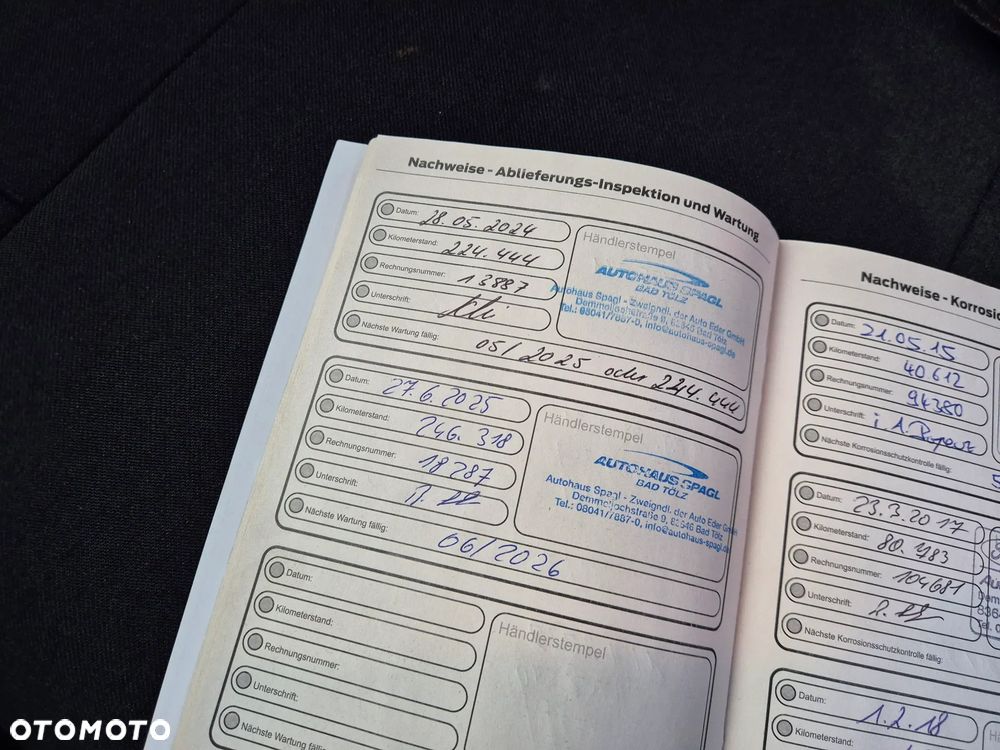 Nachweise - Ablieferungs-Inspektion und Wartung
Datum: 28.05.2024
Kilometerstand: 224.444
Rechnungsnummer: 13887
Unterschrift:
Nächste Wartung fällig: 05/2025 oder 244.444
Händlerstempel
AUTOHAUS SPAGL
BAD TÖLZ
Autohaus Spagl - Zweigndl. der Auto Eder GmbH
Demmeljochstraße 9, 83646 Bad Tölz
Tel.: 08041/7887-0, info@autohaus-spagl.de
Datum: 27.6.2025
Kilometerstand: 246.318
Rechnungsnummer: 18287
Unterschrift:
Nächste Wartung fällig: 06/2026
Händlerstempel
AUTOHAUS SPAGL
BAD TÖLZ
Autohaus Spagl - Zweigndl. der Auto Eder GmbH
Demmeljochstraße 9, 83646 Bad Tölz
Tel.: 08041/7887-0, info@autohaus-spagl.de
Datum:
Kilometerstand:
Rechnungsnummer:
Unterschrift:
Nächste Wartung fällig:
Händlerstempel
Nachweise - Korrosio
Datum: 21.05.15
Kilometerstand: 40612
Rechnungsnummer: 94380
Unterschrift: i.A.
Nächste Korrosionsschutzkontrolle fällig:
Datum: 23.3.2017
Kilometerstand: 80.483
Rechnungsnummer: 104681
Unterschrift:
Nächste Korrosionsschutzkontrolle fällig:
Datum: 1.2.18
Kilometerstand:
OTOMOTO